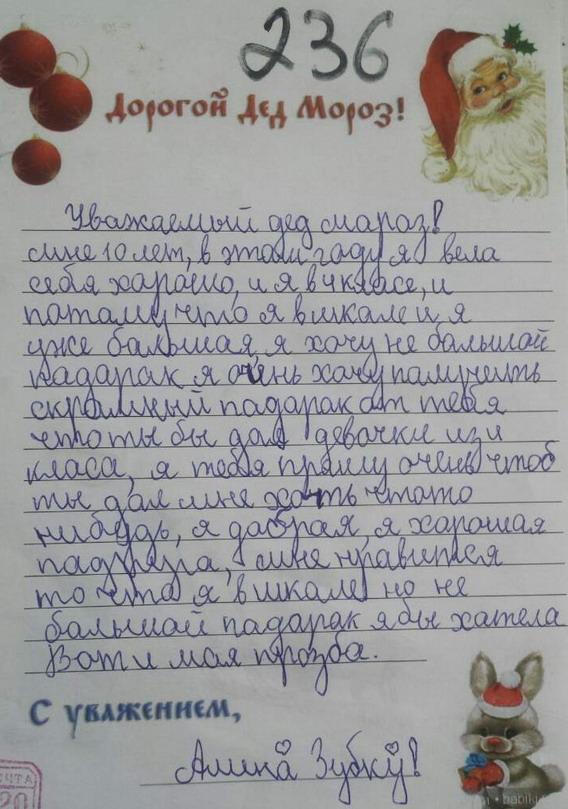 236
Дорогой Дед Мороз!
Уважаемый дед мараз!
мне 10 лет, в этам гаду я вела
себя харашо, и я в 4 класе, и
патаму что я в шкале и я
уже бальшая, я хочу не бальшой
падарак я очень хачу палучить
скромный падарак от тебя
что ты бы дал девачки из 4
класа, я тебя прашу очень чтоб
ты дал мне хоть чтото
нибудь, я добрая, я харошая
падруга, мне нравится
то что я в шкале но не
бальшой падарак я бы хатела
Вот и мая прозба.
С уважением,
Алина Зубку!
ЧТА
20
babiki